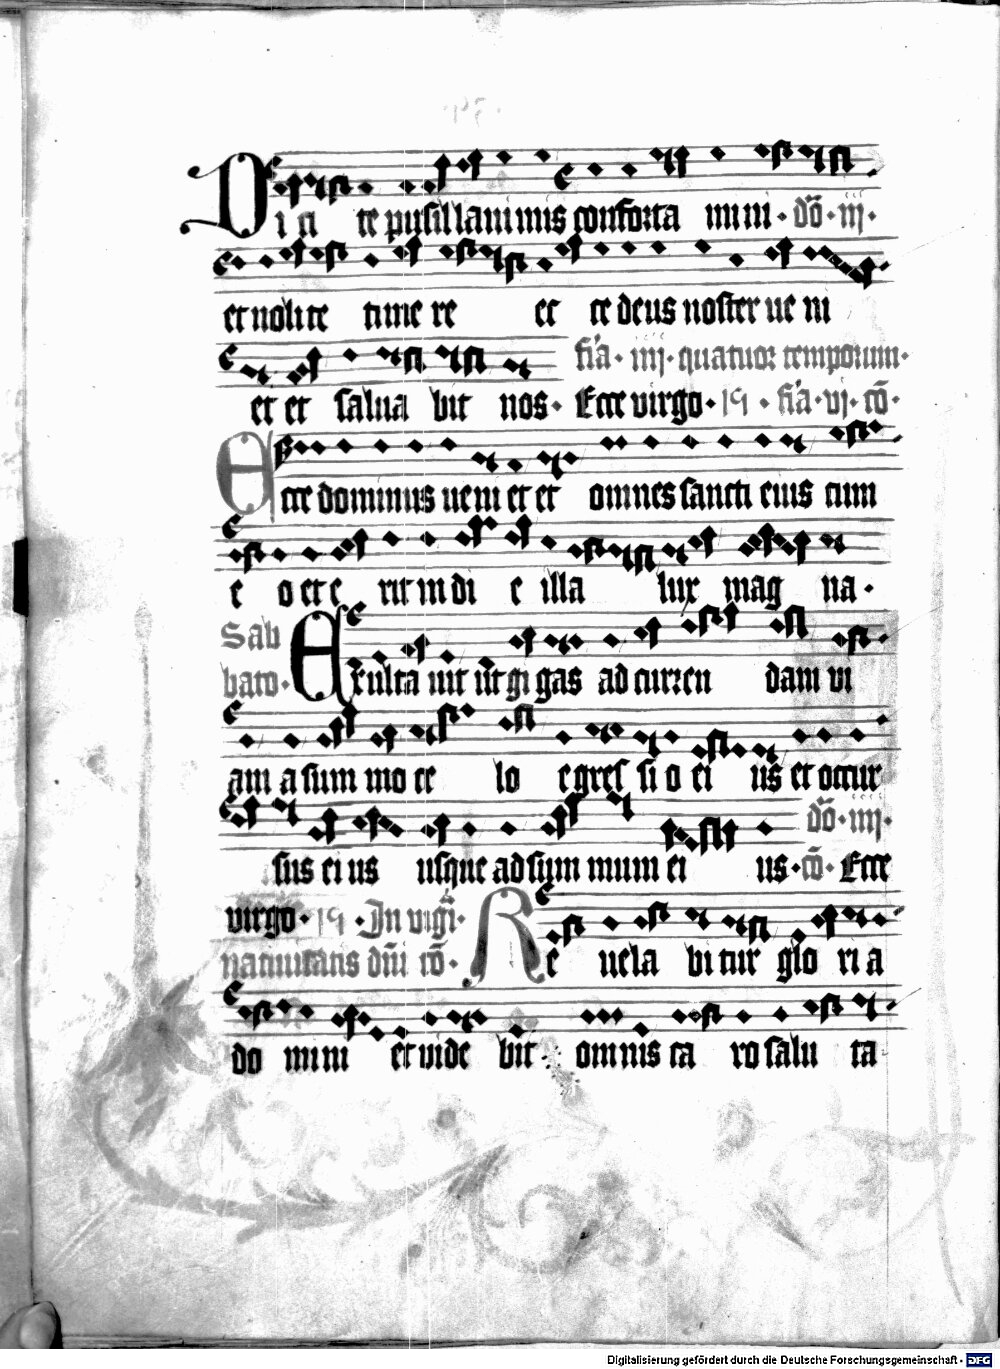 Di ci te pusillanimis conforta mini · dō · iij ·
et nolite time re ec ce deus noster ue ni
et et salua bit nos · fīa · iiij · quatuor temporum ·
Ecce virgo · 19 · fīa · vj · cō ·
Ecce dominus ueni et et omnes sancti eius cum
e o et e rit in di e illa lux mag na ·
Sab
bato · Exulta uit ut gi gas ad curren dam vi
am a sum mo ce lo egres si o ei us et occur
sus ei us usque ad sum mum ei us · dō · iiij ·
cō · Ecce
virgo · 19 · In vigi ·
natiuitatis dn̄i cō · Re uela bi tur glo ri a
do mini et vide bit · omnis ca ro salu ta
Digitalisierung gefördert durch die Deutsche Forschungsgemeinschaft - DFG